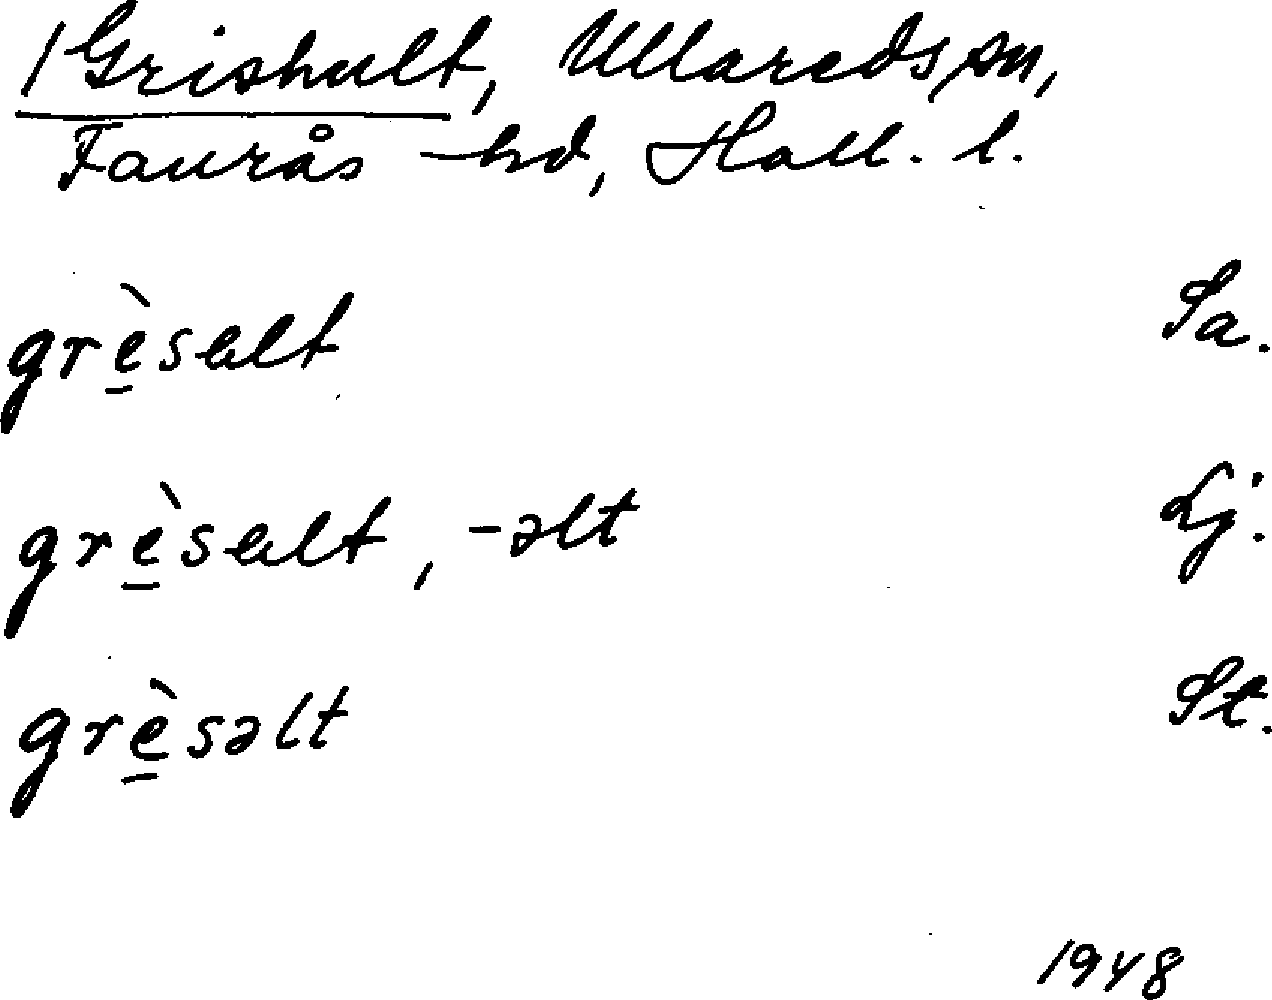 /Grishult, Ullareds sn,
Faurås hd, Hall. l.
grè̱sɐlt Sa.
grè̱sɐlt, -əlt Lj.
grè̱səlt St.
1948